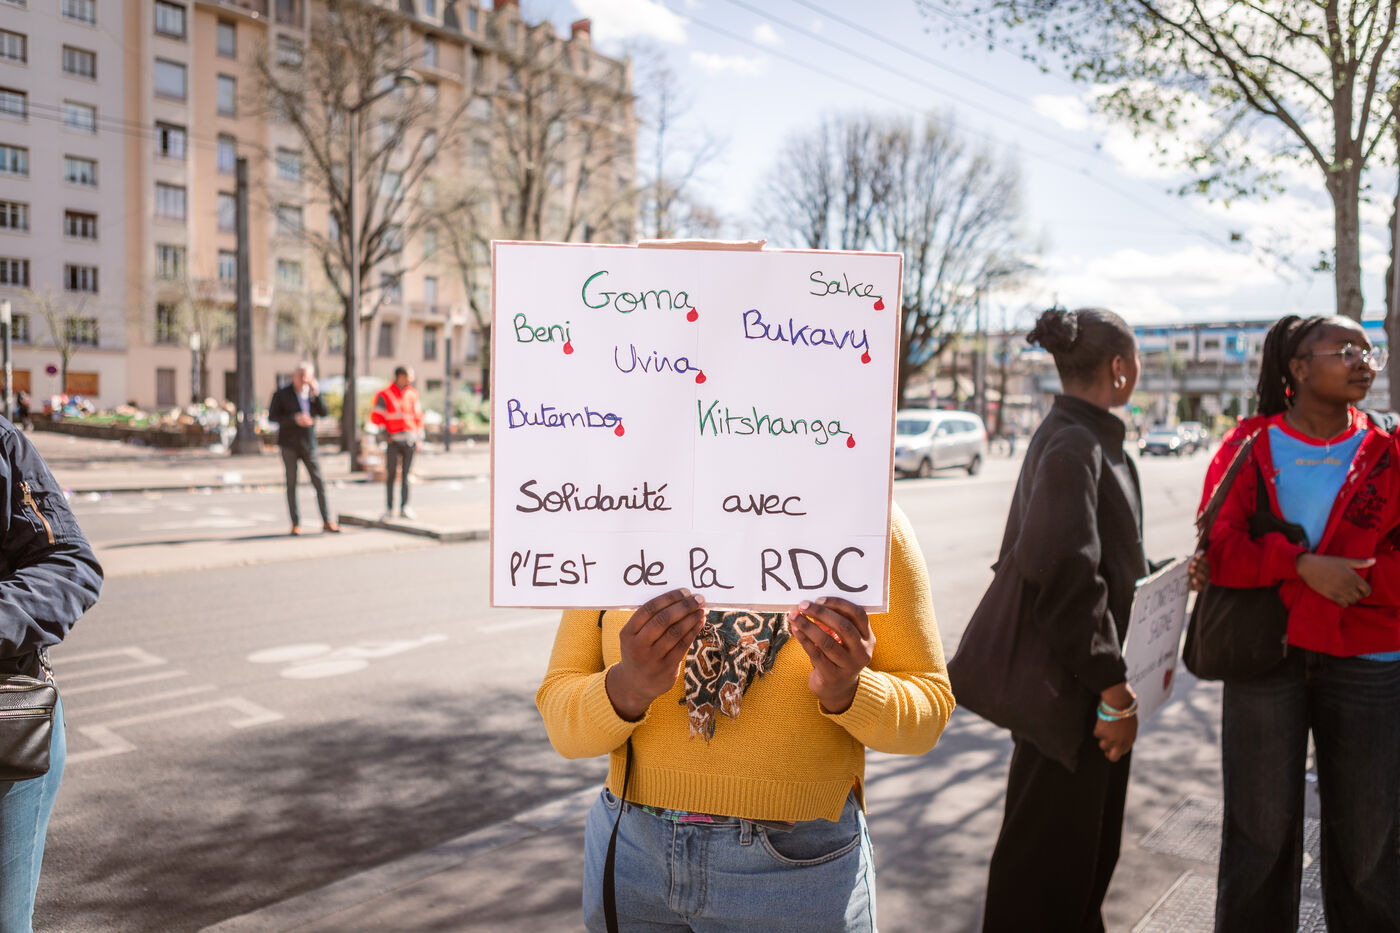 Goma Sake
Beni Bukavu
Uvira
Butembo Kitshanga
Solidarité avec
l'Est de la RDC